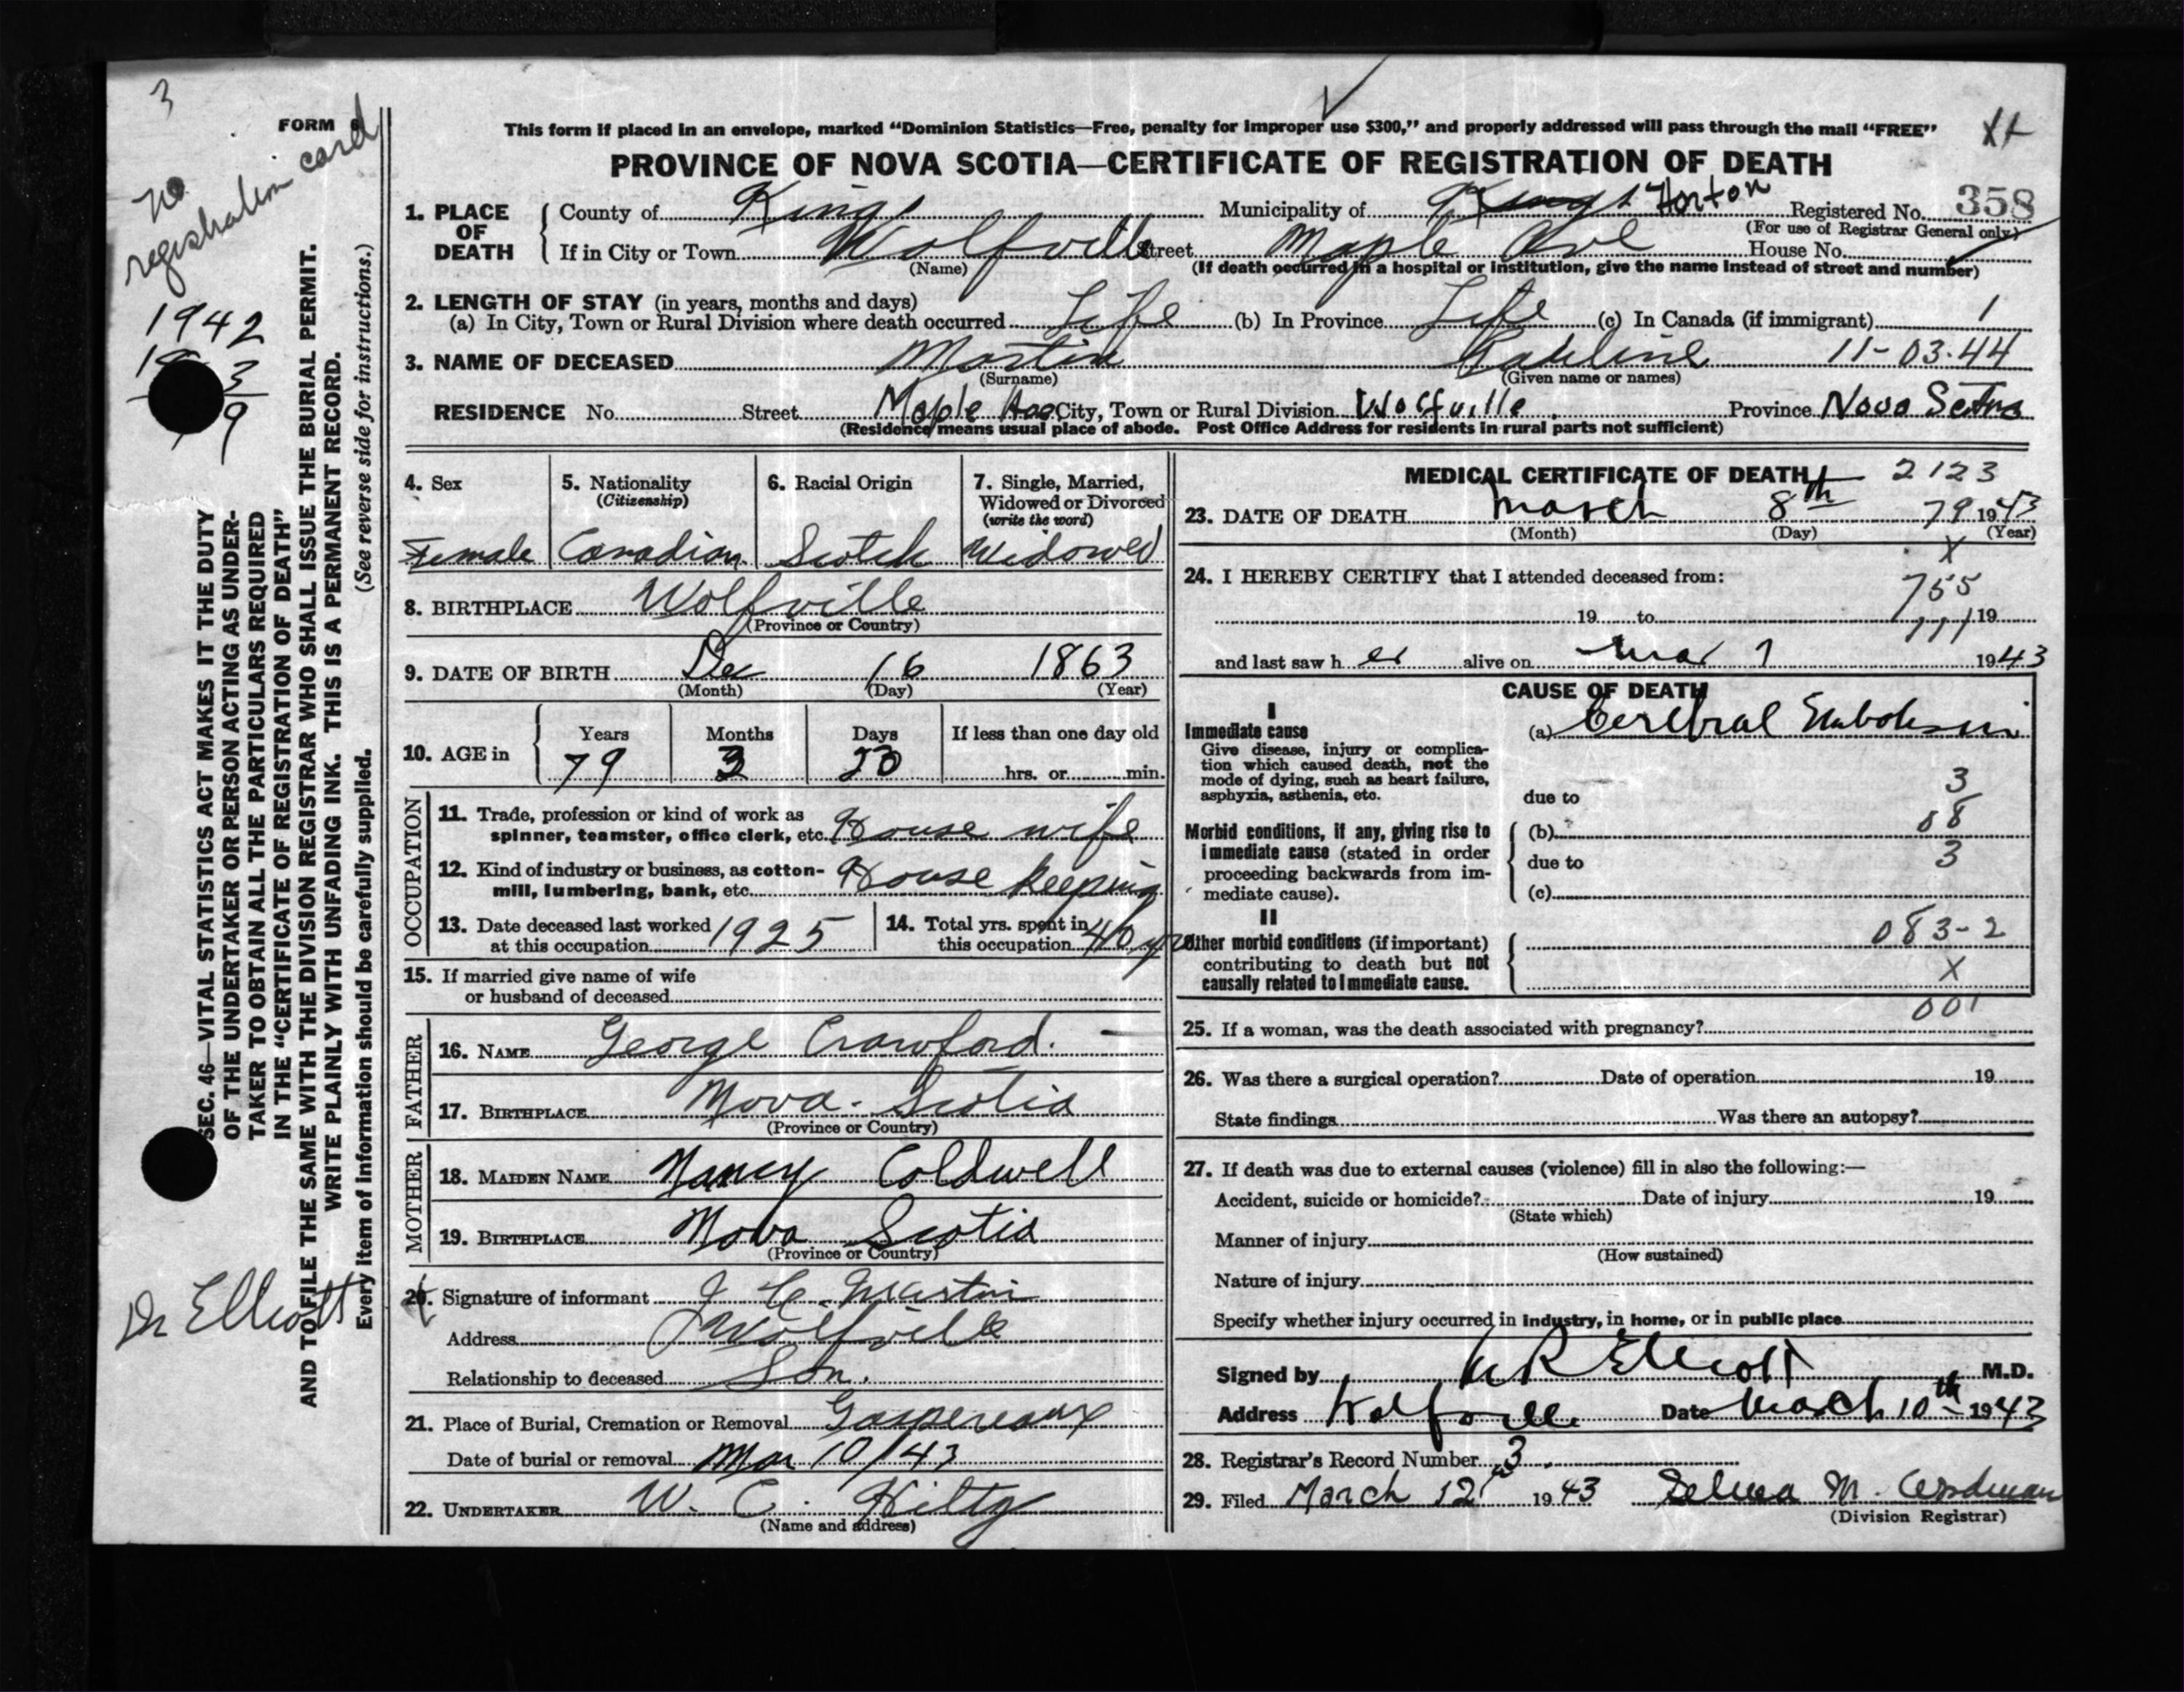 3
FORM 6
no
registration card
1942
3
9
SEC. 46—VITAL STATISTICS ACT MAKES IT THE DUTY
OF THE UNDERTAKER OR PERSON ACTING AS UNDER-
TAKER TO OBTAIN ALL THE PARTICULARS REQUIRED
IN THE "CERTIFICATE OF REGISTRATION OF DEATH"
AND TO FILE THE SAME WITH THE DIVISION REGISTRAR WHO SHALL ISSUE THE BURIAL PERMIT.
WRITE PLAINLY WITH UNFADING INK. THIS IS A PERMANENT RECORD.
Every item of information should be carefully supplied. (See reverse side for instructions.)
Dr Elliott
This form if placed in an envelope, marked "Dominion Statistics—Free, penalty for improper use $300," and properly addressed will pass through the mail "FREE"
PROVINCE OF NOVA SCOTIA—CERTIFICATE OF REGISTRATION OF DEATH
1. PLACE OF DEATH County of Kings Municipality of Kings Horton Registered No. 358
(For use of Registrar General only)
If in City or Town Wolfville Street Maple Ave House No.
(Name) (If death occurred in a hospital or institution, give the name instead of street and number)
2. LENGTH OF STAY (in years, months and days)
(a) In City, Town or Rural Division where death occurred Life (b) In Province Life (c) In Canada (if immigrant) 1
3. NAME OF DECEASED Martin 11-03-44
(Surname) (Given name or names)
RESIDENCE No. Street Maple Ave City, Town or Rural Division Wolfville Province Nova Scotia
(Residence means usual place of abode. Post Office Address for residents in rural parts not sufficient)
4. Sex 5. Nationality 6. Racial Origin 7. Single, Married,
(Citizenship) Widowed or Divorced
(write the word)
Female Canadian Scotch Widowed
8. BIRTHPLACE Wolfville
(Province or Country)
9. DATE OF BIRTH Dec 16 1863
(Month) (Day) (Year)
10. AGE in Years Months Days If less than one day old
79 3 hrs. or min.
OCCUPATION
11. Trade, profession or kind of work as
spinner, teamster, office clerk, etc. House wife
12. Kind of industry or business, as cotton-
mill, lumbering, bank, etc. House keeping
13. Date deceased last worked
at this occupation 1925
14. Total yrs. spent in
this occupation 40 yrs
15. If married give name of wife
or husband of deceased
FATHER
16. NAME George Crawford.
17. BIRTHPLACE Nova Scotia
(Province or Country)
MOTHER
18. MAIDEN NAME Nancy Coldwell
19. BIRTHPLACE Nova Scotia
(Province or Country)
20. Signature of informant J. C. Martin
Address Wolfville
Relationship to deceased Son.
21. Place of Burial, Cremation or Removal Gaspereaux
Date of burial or removal Mar 10/43
22. UNDERTAKER W. C. Hiltz
(Name and address)
MEDICAL CERTIFICATE OF DEATH 2123
23. DATE OF DEATH March 8th 79 1943
(Month) (Day) (Year)
X
24. I HEREBY CERTIFY that I attended deceased from:
755
19 to 111 19
and last saw h er alive on Mar 7 1943
CAUSE OF DEATH
I
Immediate cause
Give disease, injury or complica-
tion which caused death, not the
mode of dying, such as heart failure,
asphyxia, asthenia, etc.
(a) Cerebral Embolism
due to 3
Morbid conditions, if any, giving rise to
immediate cause (stated in order
proceeding backwards from im-
mediate cause).
(b) 08
due to 3
(c)
II
Other morbid conditions (if important)
contributing to death but not
causally related to immediate cause.
083-2
X
001
25. If a woman, was the death associated with pregnancy?
26. Was there a surgical operation? Date of operation 19
State findings Was there an autopsy?
27. If death was due to external causes (violence) fill in also the following:—
Accident, suicide or homicide? Date of injury 19
(State which)
Manner of injury
(How sustained)
Nature of injury
Specify whether injury occurred in industry, in home, or in public place
Signed by Elliott M.D.
Address Wolfville Date March 10th 1943
28. Registrar's Record Number 3.
29. Filed March 12 1943 M.
(Division Registrar)